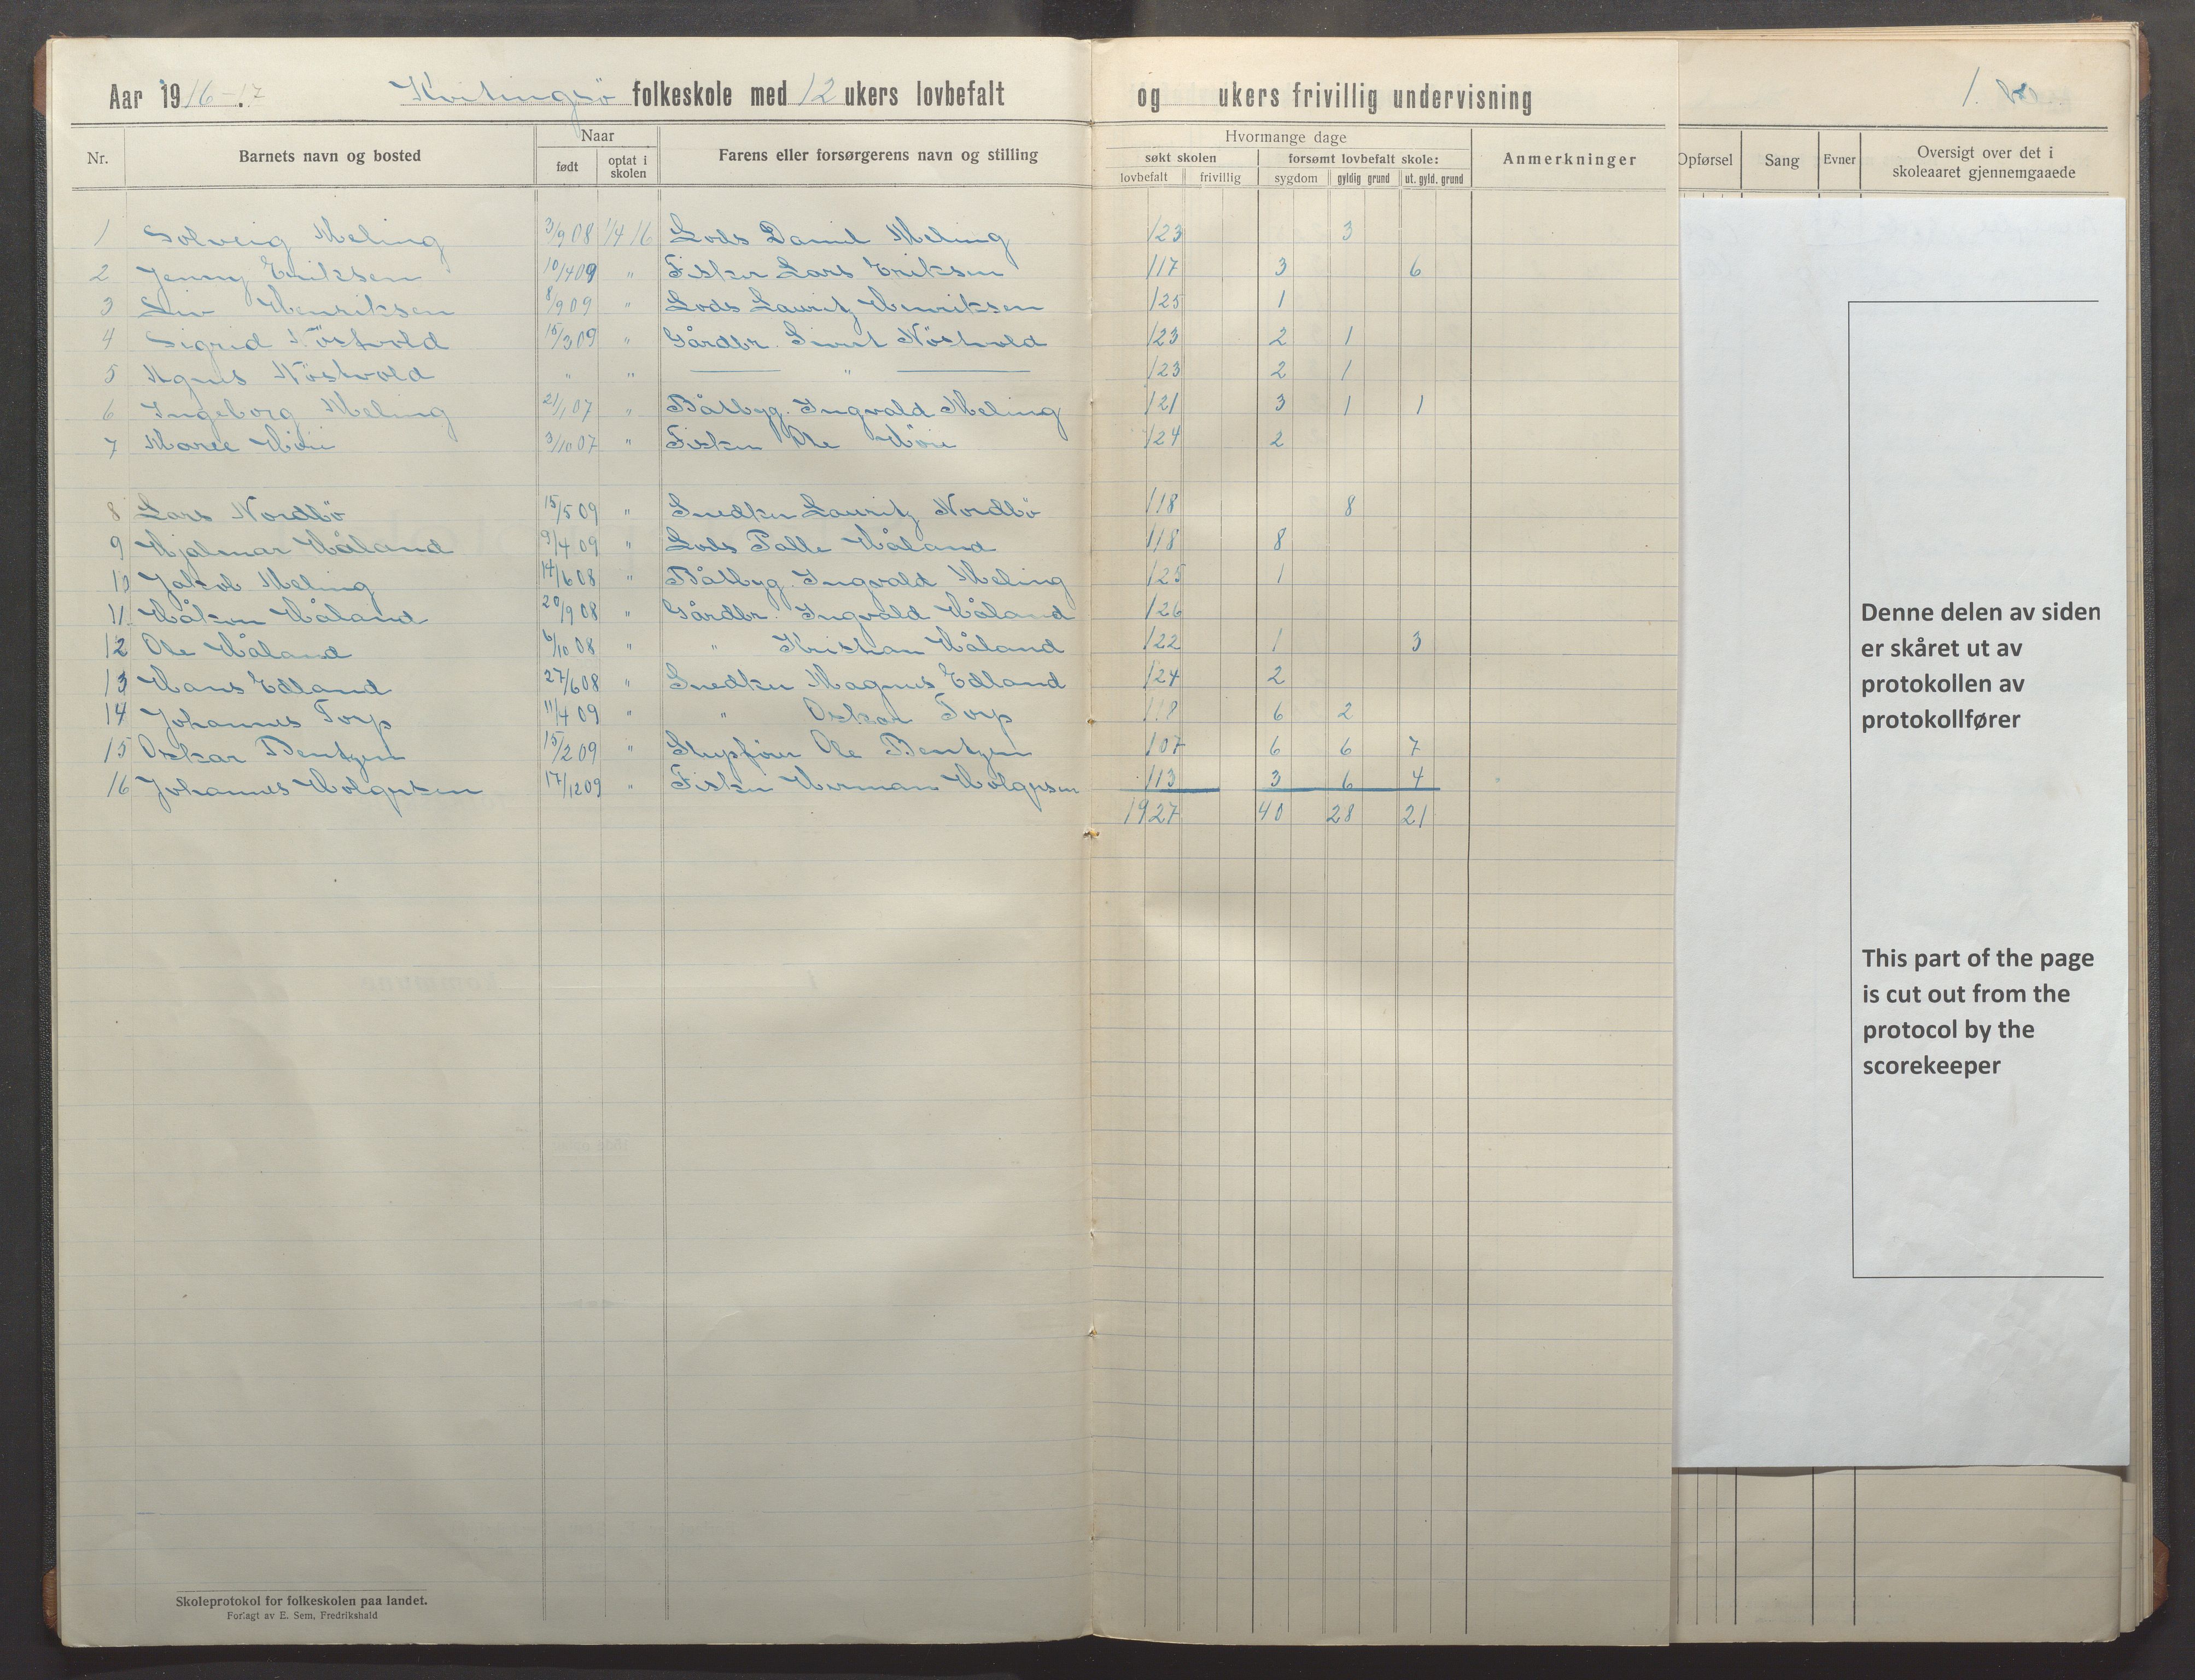 Aar 1916-17. Kvitingsö folkeskole med 12 ukers lovbefalt og ukers frivillig undervisning 1.
Nr. Barnets navn og bosted Naar Farens eller forsørgerens navn og stilling Hvormange dage Anmerkninger Opførsel Sang Evner Oversigt over det i skoleaaret gjennemgaaede
født optat i skolen søkt skolen forsømt lovbefalt skole:
lovbefalt frivillig sygdom gyldig grund ut. gyld. grund
1 Solveig Meling 3/9 08 1/4 16 Lods Daniel Meling 123 3
2 Jenny Eriksen 10/4 09 " Fisker Lars Eriksen 117 3 6
3 Liv Henriksen 8/9 09 " Lods Lauritz Henriksen 125 1
4 Sigrid Nöstvold 15/3 09 " Gårdbr. Sivert Nöstvold 123 2 1
5 Agnes Nöstvold " " " 123 2 1
6 Ingeborg Meling 21/1 07 " Båtbyg. Ingvald Meling 121 3 1 1
7 Maree Höie 3/10 07 " Fisker Ole Höie 124 2
8 Lars Nordbö 15/5 09 " Snedker Lauritz Nordbö 118 8
9 Hjalmar Håland 9/4 09 " Lods Palle Håland 118 8
10 Jakob Meling 14/6 08 " Båtbyg. Ingvald Meling 125 1
11. Håkon Håland 20/9 08 " Gårdbr. Ingvald Håland 126
12 Ole Håland 6/10 08 " " Kristian Håland 122 1 3
13 Hans Edland 27/6 08 " Snedker Magnus Edland 124 2
14 Johannes Torp 11/4 09 " " Oskar Torp 118 6 2
15 Oskar Bentzen 15/2 09 " Ole Bentzen 107 6 6 7
16 Johannes Holgersen 17/12 09 " Fisker Herman Holgersen 113 3 6 4
1927 40 28 21
Denne delen av siden
er skåret ut av
protokollen av
protokollfører
This part of the page
is cut out from the
protocol by the
scorekeeper
Skoleprotokol for folkeskolen paa landet.
Forlagt av E. Sem, Fredrikshald